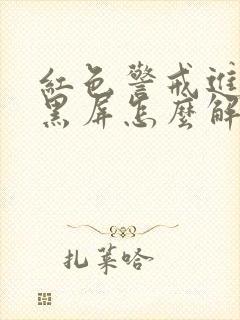 红色警戒进
黑屏怎麼解
扎莱哈